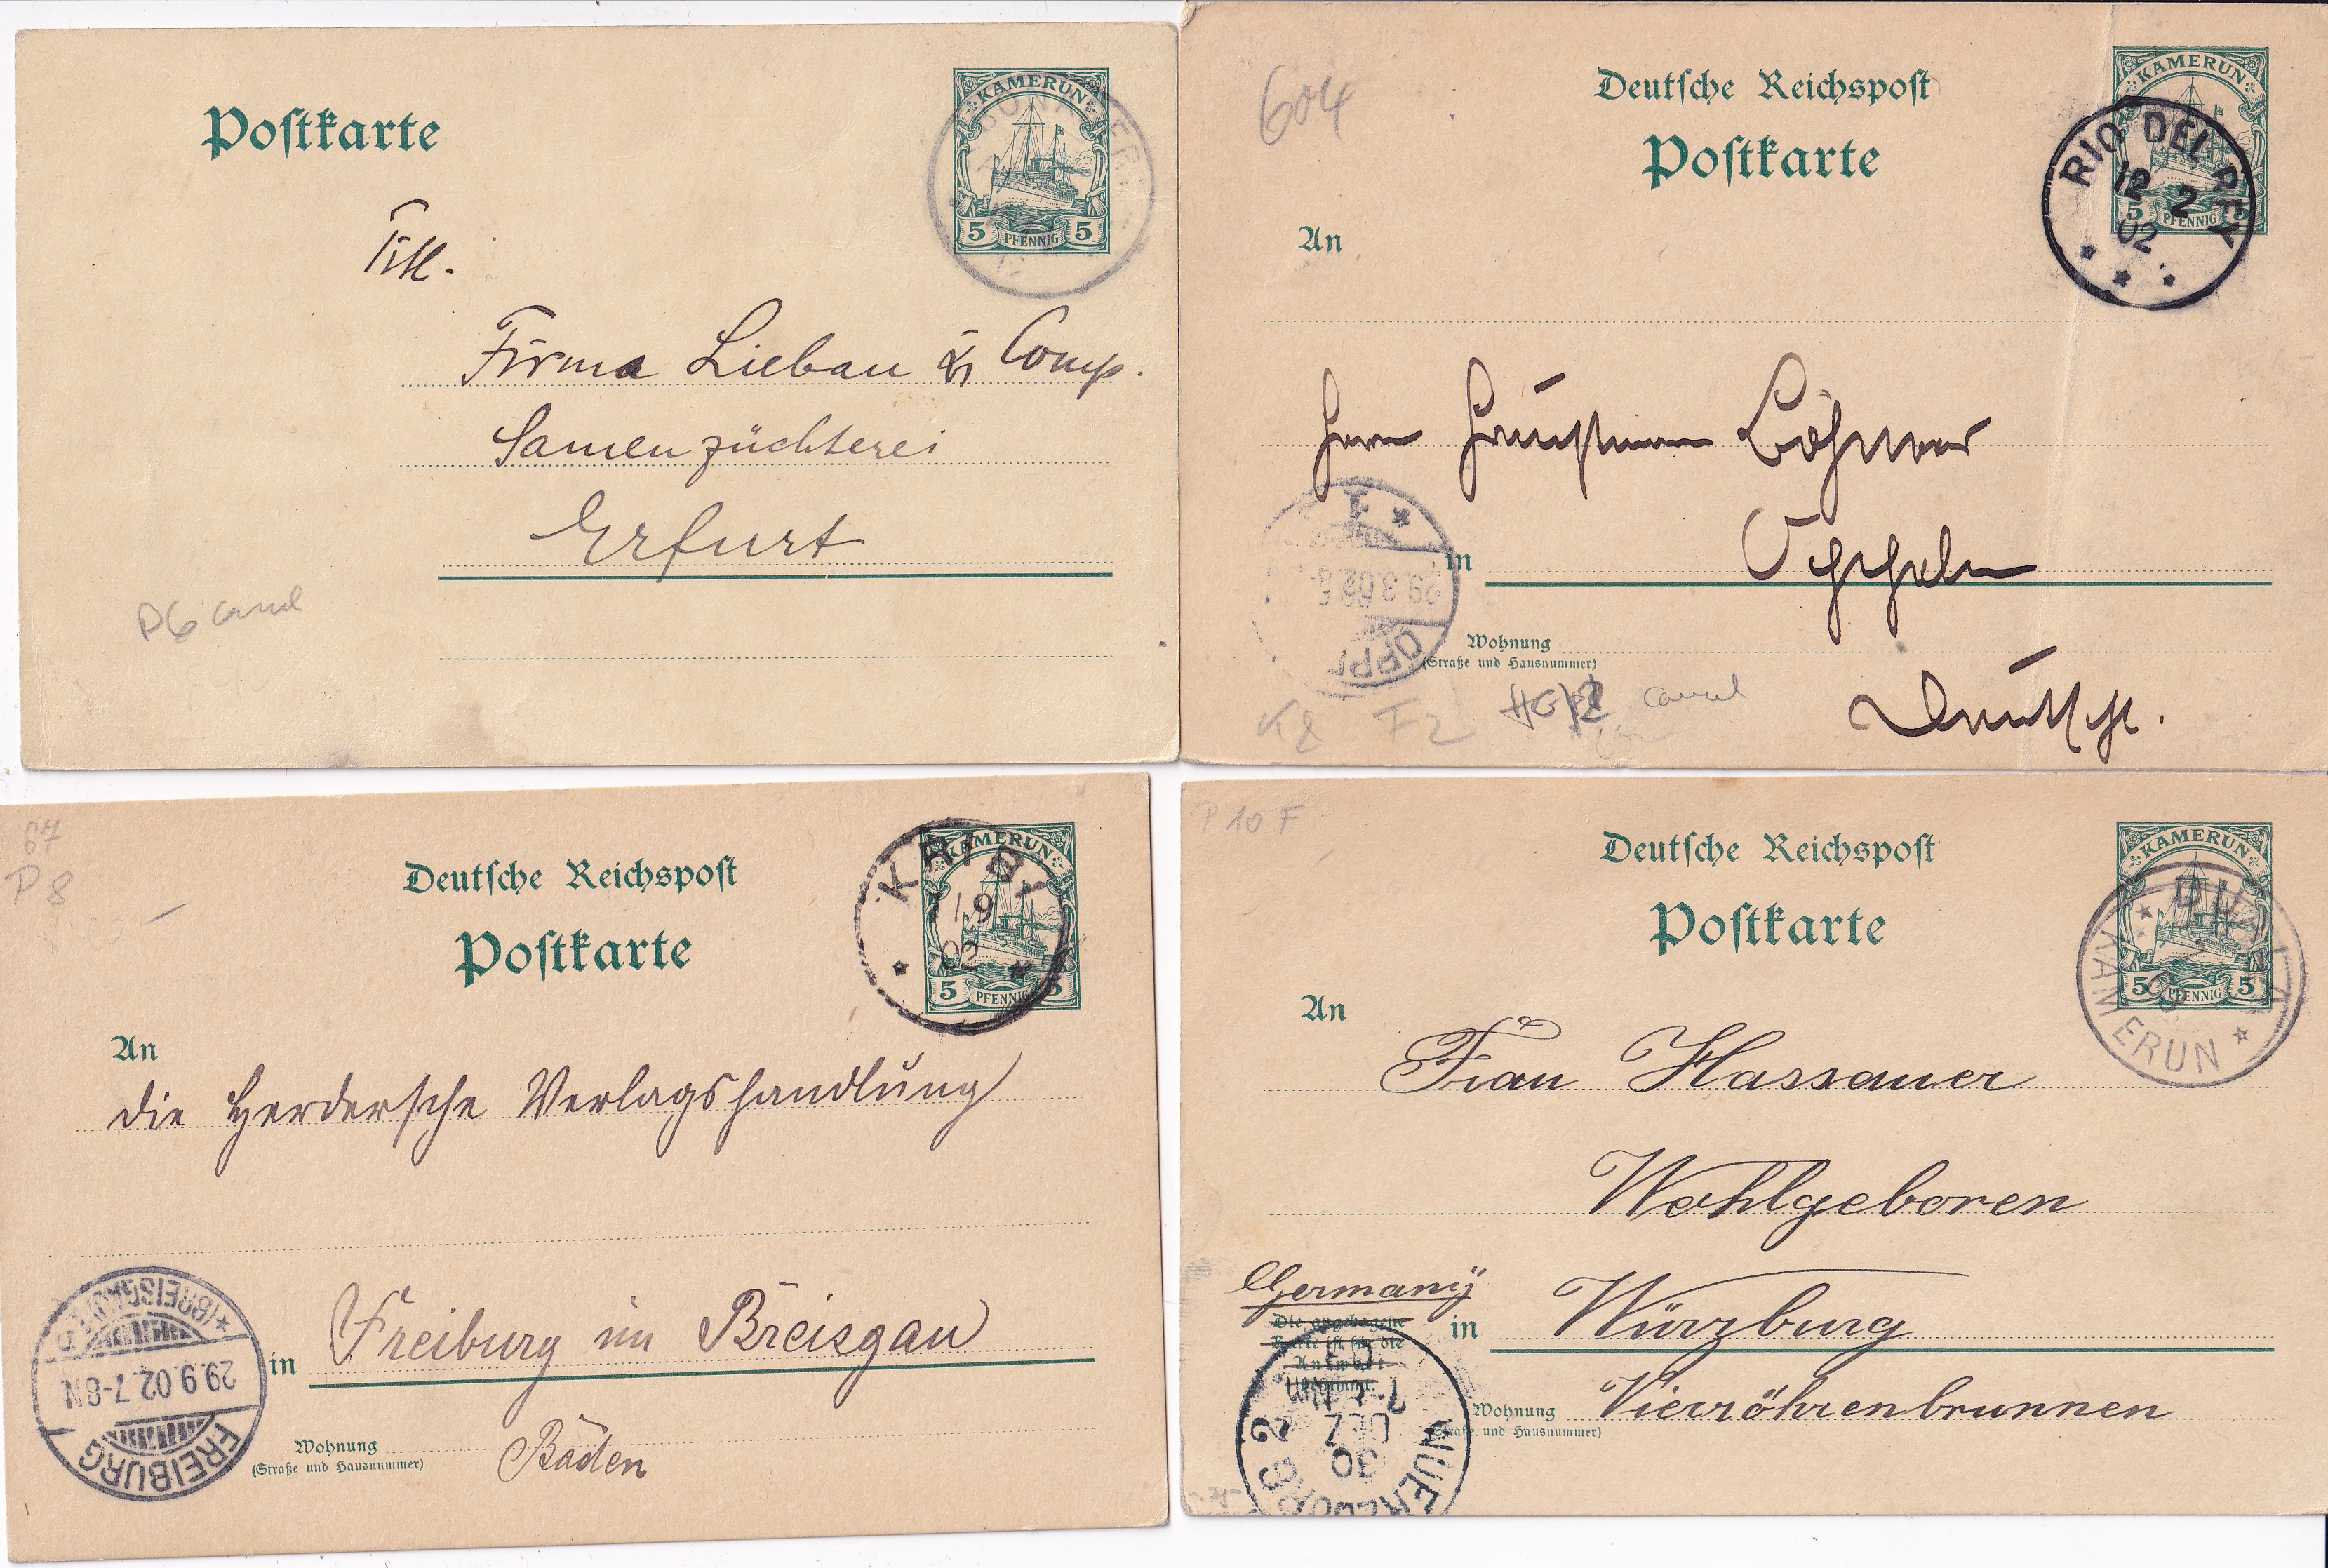 Postkarte
KAMERUN
5 PFENNIG 5
Titl.
Firma Liebau & Comp.
Samenzüchterei
Erfurt
P6
604
Deutsche Reichspost
Postkarte
KAMERUN
5 PFENNIG 5
RIO DEL REY
12 2
02
An
Herrn Hauptmann
in
29.3.02
OPP
Wohnung
(Straße und Hausnummer)
K8 F2
Deutschl.
67
P 8
Deutsche Reichspost
Postkarte
KAMERUN
5 PFENNIG 5
KRIBI
19
02
An
die Herdersche Verlagshandlung
in Freiburg im Breisgau
Wohnung
(Straße und Hausnummer)
Baden
FREIBURG
29.9.02.7-8N
(BREISGAU)
P 10 F
Deutsche Reichspost
Postkarte
KAMERUN
5 PFENNIG 5
DUALA
KAMERUN
An
Frau Hassauer
Wohlgeboren
Germany
Die angebogene
Karte ist für die
Antwort
bestimmt.
in Würzburg
Wohnung Vierröhrenbrunnen
(Straße und Hausnummer)
WUERZBURG 2
30
DEZ
03